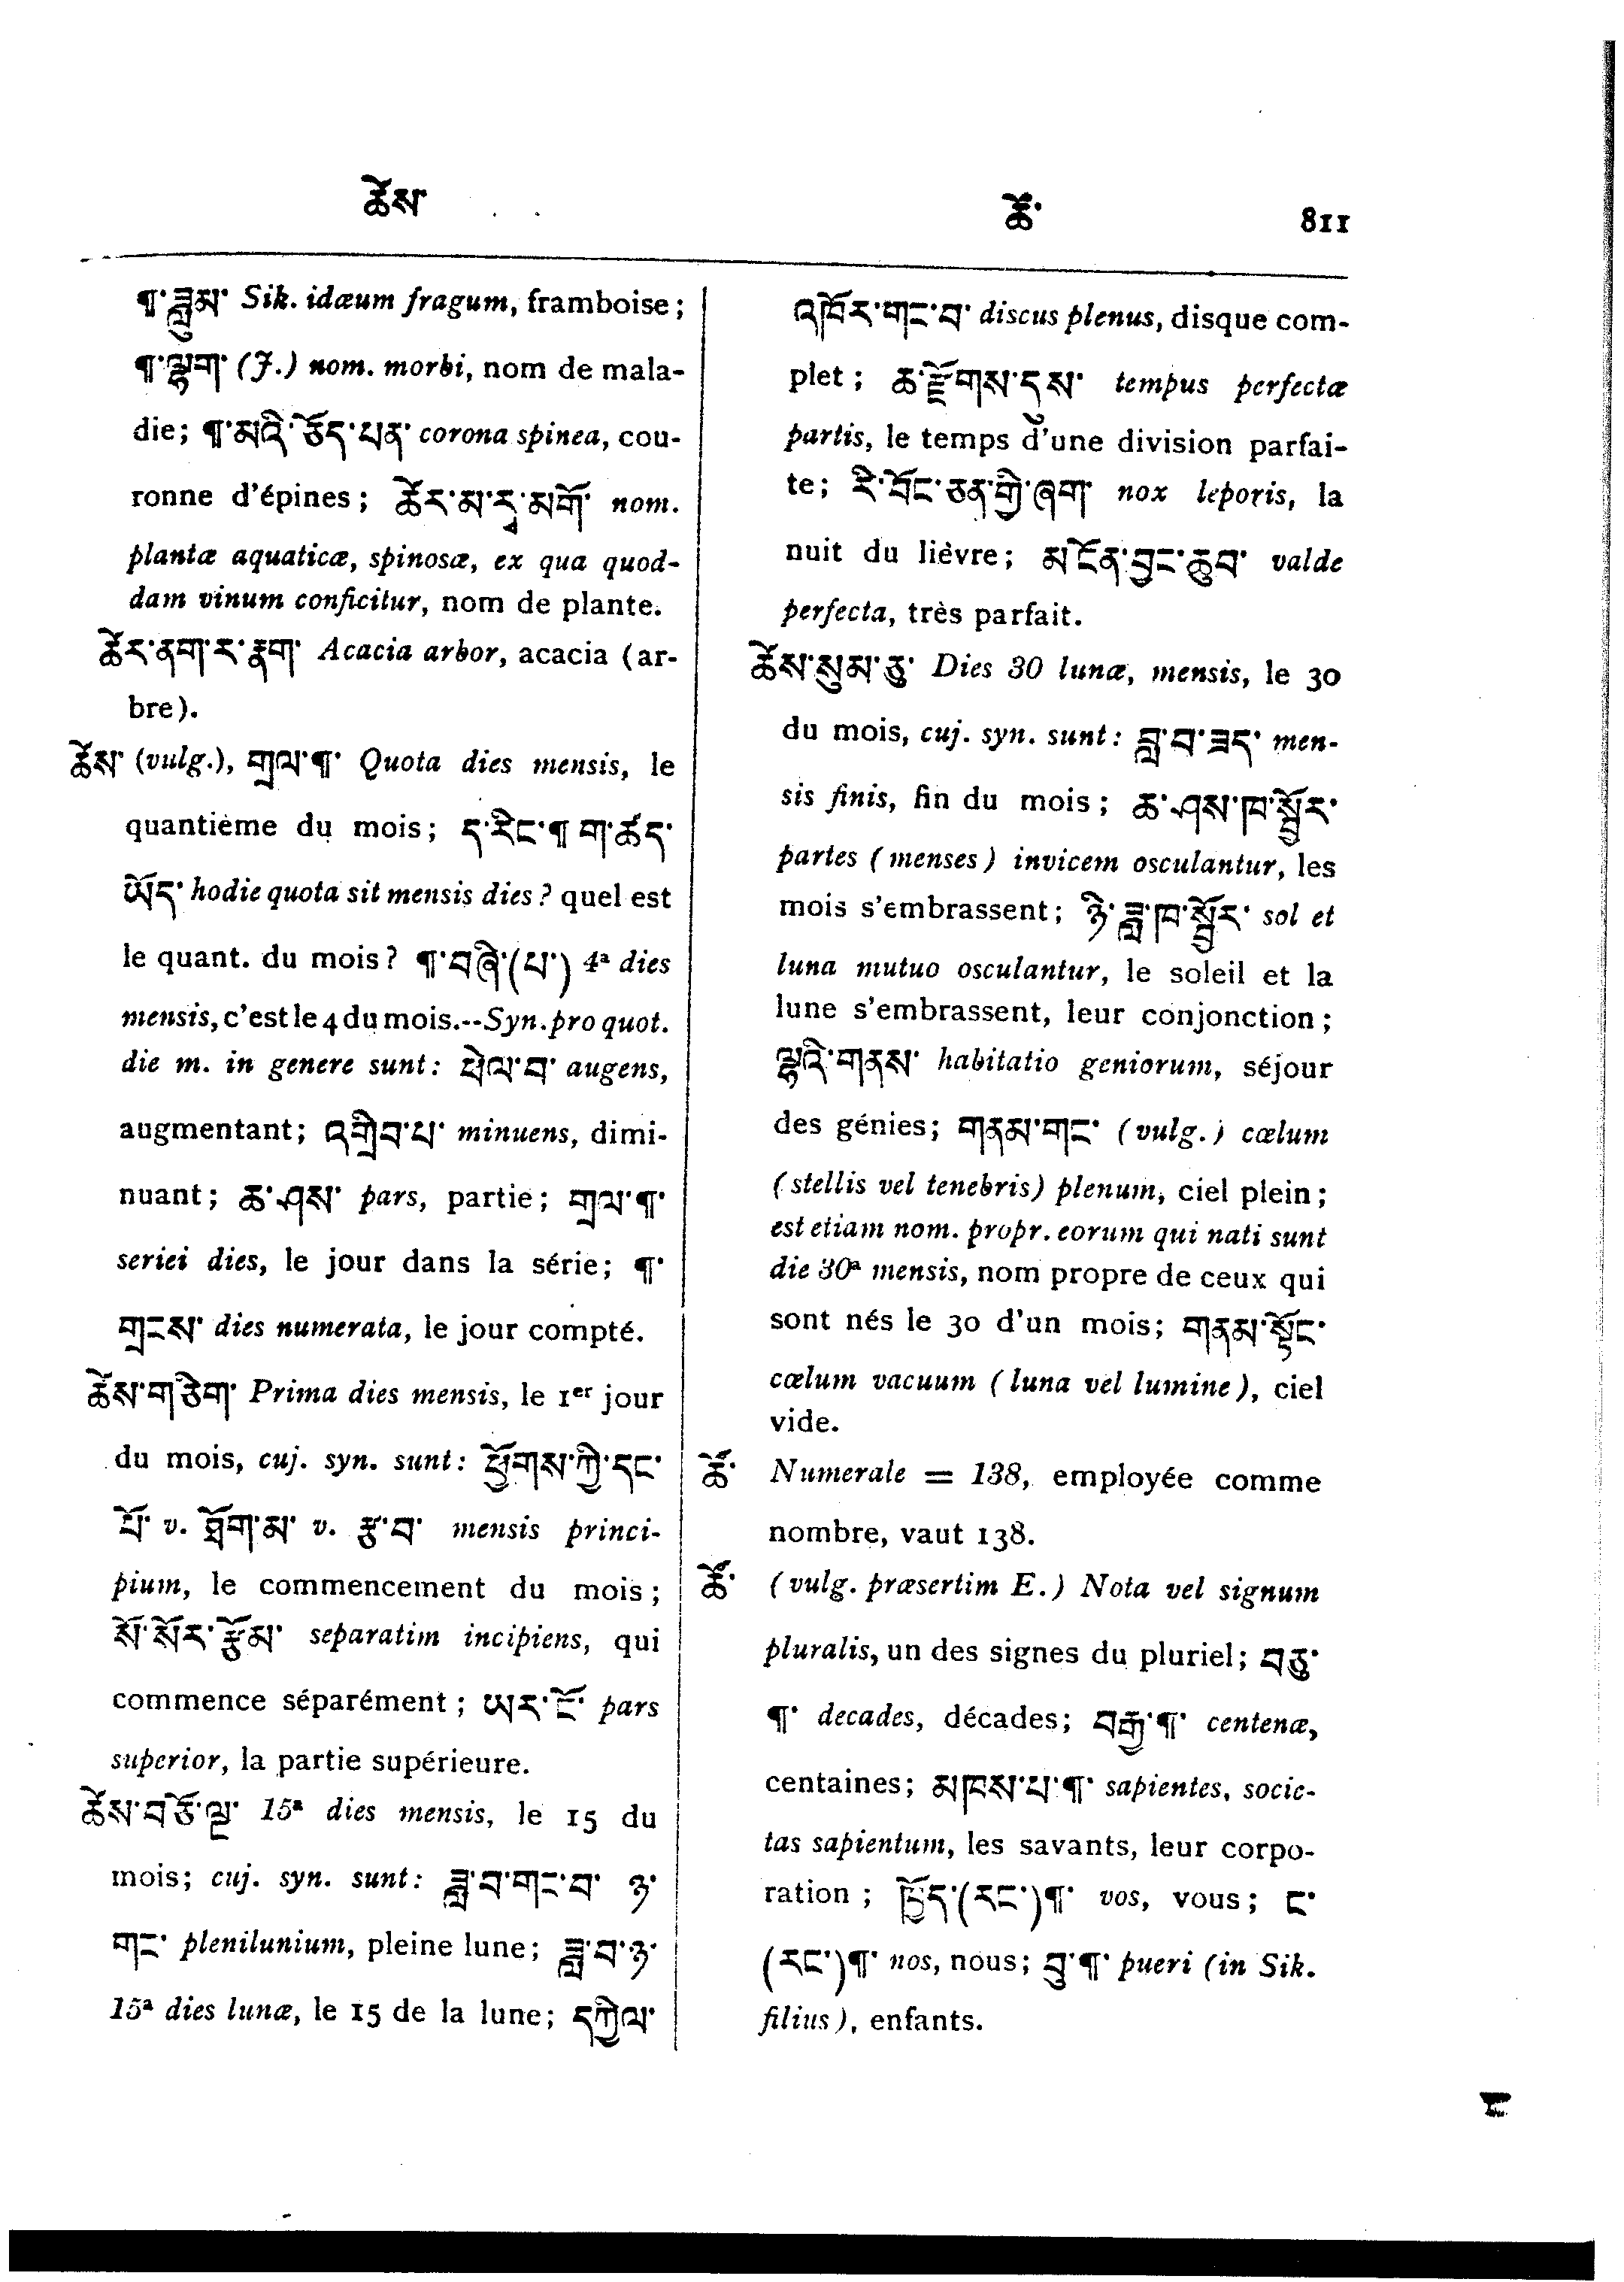 ཚེས་
ཚོ་ 811
¶་ཟླུམ་ Sik. idæum fragum, framboise;
¶་ལྷག་ (J.) nom. morbi, nom de mala-
die; ¶་མའི་ཅོད་པན་ corona spinea, cou-
ronne d'épines; ཚེར་མ་རྭ་མགོ་ nom.
plantæ aquaticæ, spinosæ, ex qua quod-
dam vinum conficitur, nom de plante.
ཚེར་ནག་ར་རྣག་ Acacia arbor, acacia (ar-
bre).
ཚེས་ (vulg.), གྲལ་¶་ Quota dies mensis, le
quantième du mois; ད་རིང་¶ ག་ཚད་
ཡོད་ hodie quota sit mensis dies? quel est
le quant. du mois? ¶་བཞི་(པ་) 4ª dies
mensis, c'est le 4 du mois.--Syn. pro quot.
die m. in genere sunt: ཕེལ་བ་ augens,
augmentant; འགྲིབ་པ་ minuens, dimi-
nuant; ཆ་ཤས་ pars, partie; གྲལ་¶་
seriei dies, le jour dans la série; ¶་
གྲངས་ dies numerata, le jour compté.
ཚེས་གཅིག་ Prima dies mensis, le 1er jour
du mois, cuj. syn. sunt: ཕྱོགས་ཀྱི་དང་
པོ་ v. ཐོག་མ་ v. རྩ་བ་ mensis princi-
pium, le commencement du mois;
སོ་སོར་རྩོམ་ separatim incipiens, qui
commence séparément; ཡར་ངོ་ pars
superior, la partie supérieure.
ཚེས་བཅོ་ལྔ་ 15ª dies mensis, le 15 du
mois; cuj. syn. sunt: ཟླ་བ་གང་བ་ ཉ་
གང་ plenilunium, pleine lune; ཟླ་བ་ཉ་
15ª dies lunæ, le 15 de la lune; དཀྱིལ་
འཁོར་གང་བ་ discus plenus, disque com-
plet; ཆ་རྫོགས་དུས་ tempus perfectæ
partis, le temps d'une division parfai-
te; རི་བོང་ཅན་གྱི་ཞག་ nox leporis, la
nuit du lièvre; མངོན་བྱང་ཆུབ་ valde
perfecta, très parfait.
ཚེས་སུམ་ཅུ་ Dies 30 lunæ, mensis, le 30
du mois, cuj. syn. sunt: ཟླ་བ་ཟད་ men-
sis finis, fin du mois; ཆ་ཤས་ཁ་སྦྱོར་
partes (menses) invicem osculantur, les
mois s'embrassent; ཉི་ཟླ་ཁ་སྦྱོར་ sol et
luna mutuo osculantur, le soleil et la
lune s'embrassent, leur conjonction;
ལྷའི་གནས་ habitatio geniorum, séjour
des génies; གནམ་གང་ (vulg.) cœlum
(stellis vel tenebris) plenum, ciel plein;
est etiam nom. propr. eorum qui nati sunt
die 30ª mensis, nom propre de ceux qui
sont nés le 30 d'un mois; གནམ་སྟོང་
cœlum vacuum (luna vel lumine), ciel
vide.
ཚོ་ Numerale = 138, employée comme
nombre, vaut 138.
ཚོ་ (vulg. præsertim E.) Nota vel signum
pluralis, un des signes du pluriel; བཅུ་
¶་ decades, décades; བརྒྱ་¶་ centenæ,
centaines; མཁས་པ་¶་ sapientes, socie-
tas sapientum, les savants, leur corpo-
ration; ཁྱོད་(རང་)¶་ vos, vous; ང་
(རང་)¶་ nos, nous; བུ་¶་ pueri (in Sik.
filius), enfants.